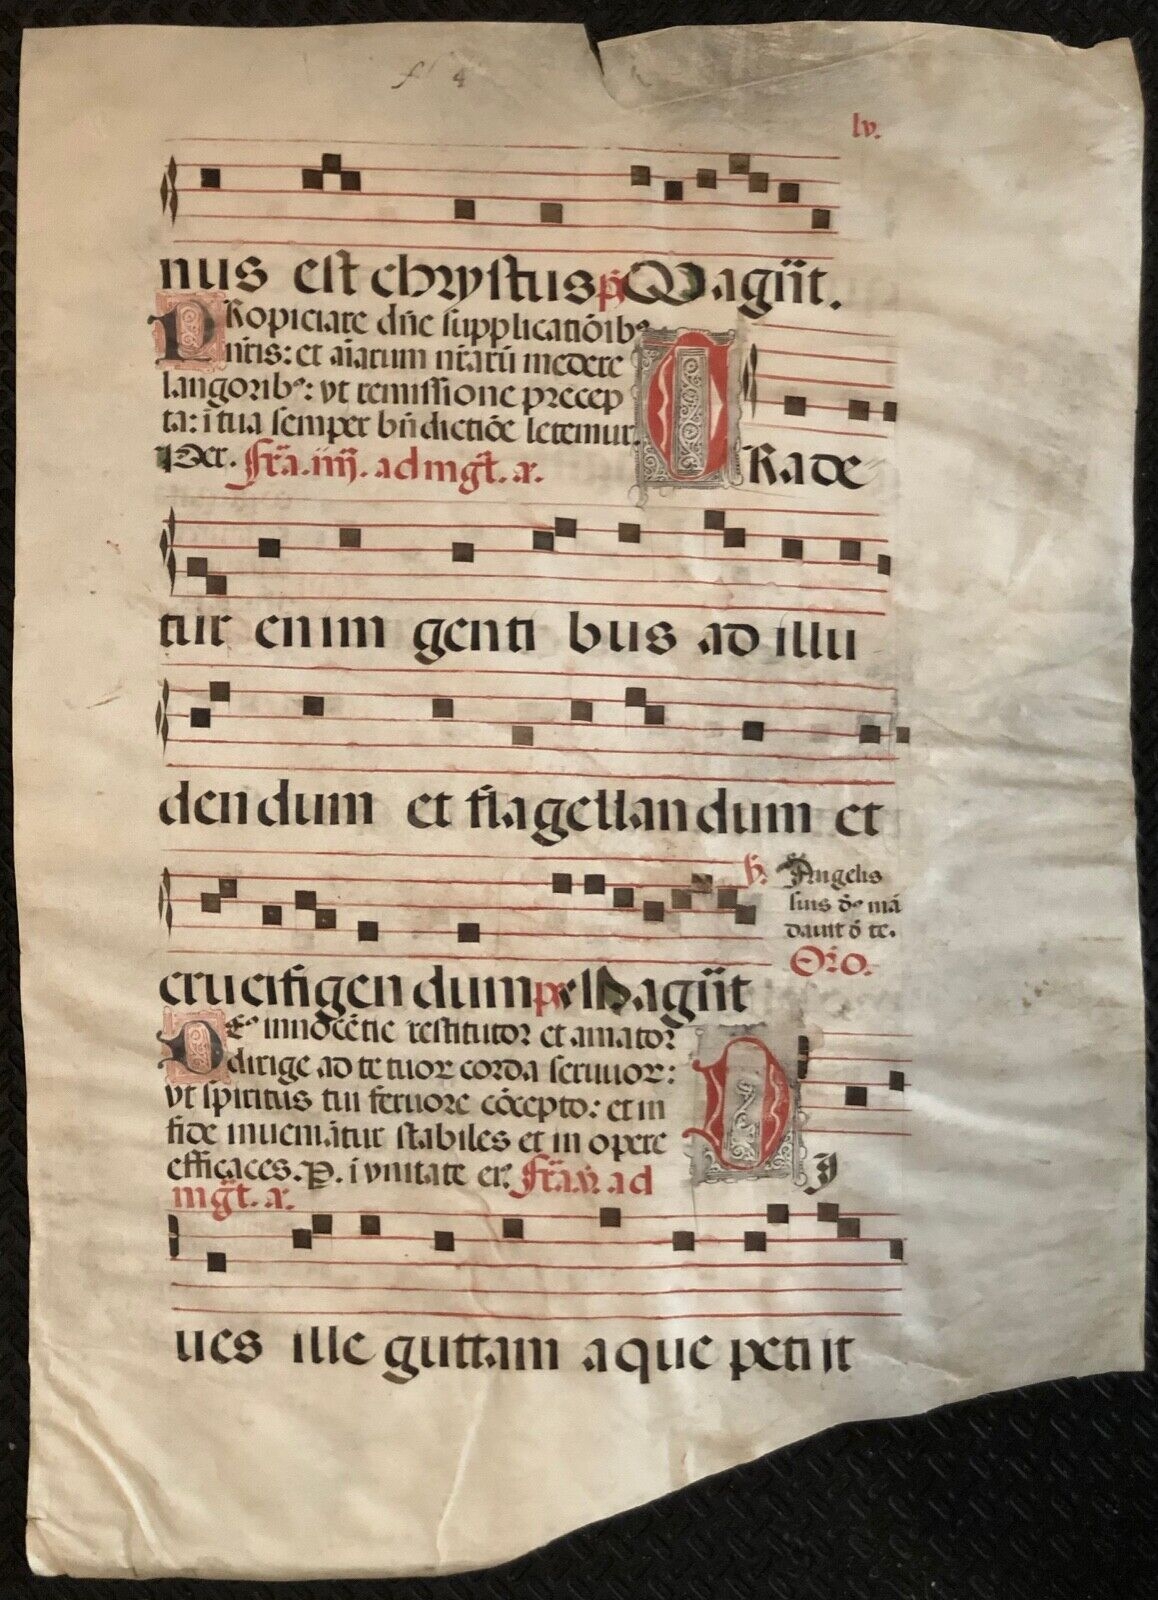 f 4
lv.
nus est chrystus ps Magñt.
PRopiciare dñe supplicatiõib⁹
nr̃is: et aĩarum nr̃arũ medere
langorib⁹: vt remissione precep
ta: ĩ tua semper bñdictiõe letemur.
Per. Fr̃a. iiij. ad mgt̃. a.
TRade
tur enim genti bus ad illu
den dum et flagellan dum et
℣. Angelis
suis d⁹ mã
dauit d̃ te.
Or̃o.
crucifigen dum ps Magñt
DE⁹ innocẽtie restitutor et amator
dirige ad te tuor corda seruuor:
vt spiritus tui feruore cõcepto: et in
fide inueniãtur stabiles et in opere
efficaces. P. ĩ vnitate er. Fr̃a. v. ad
mgt̃. a.
DI
ues ille guttam aque petiit